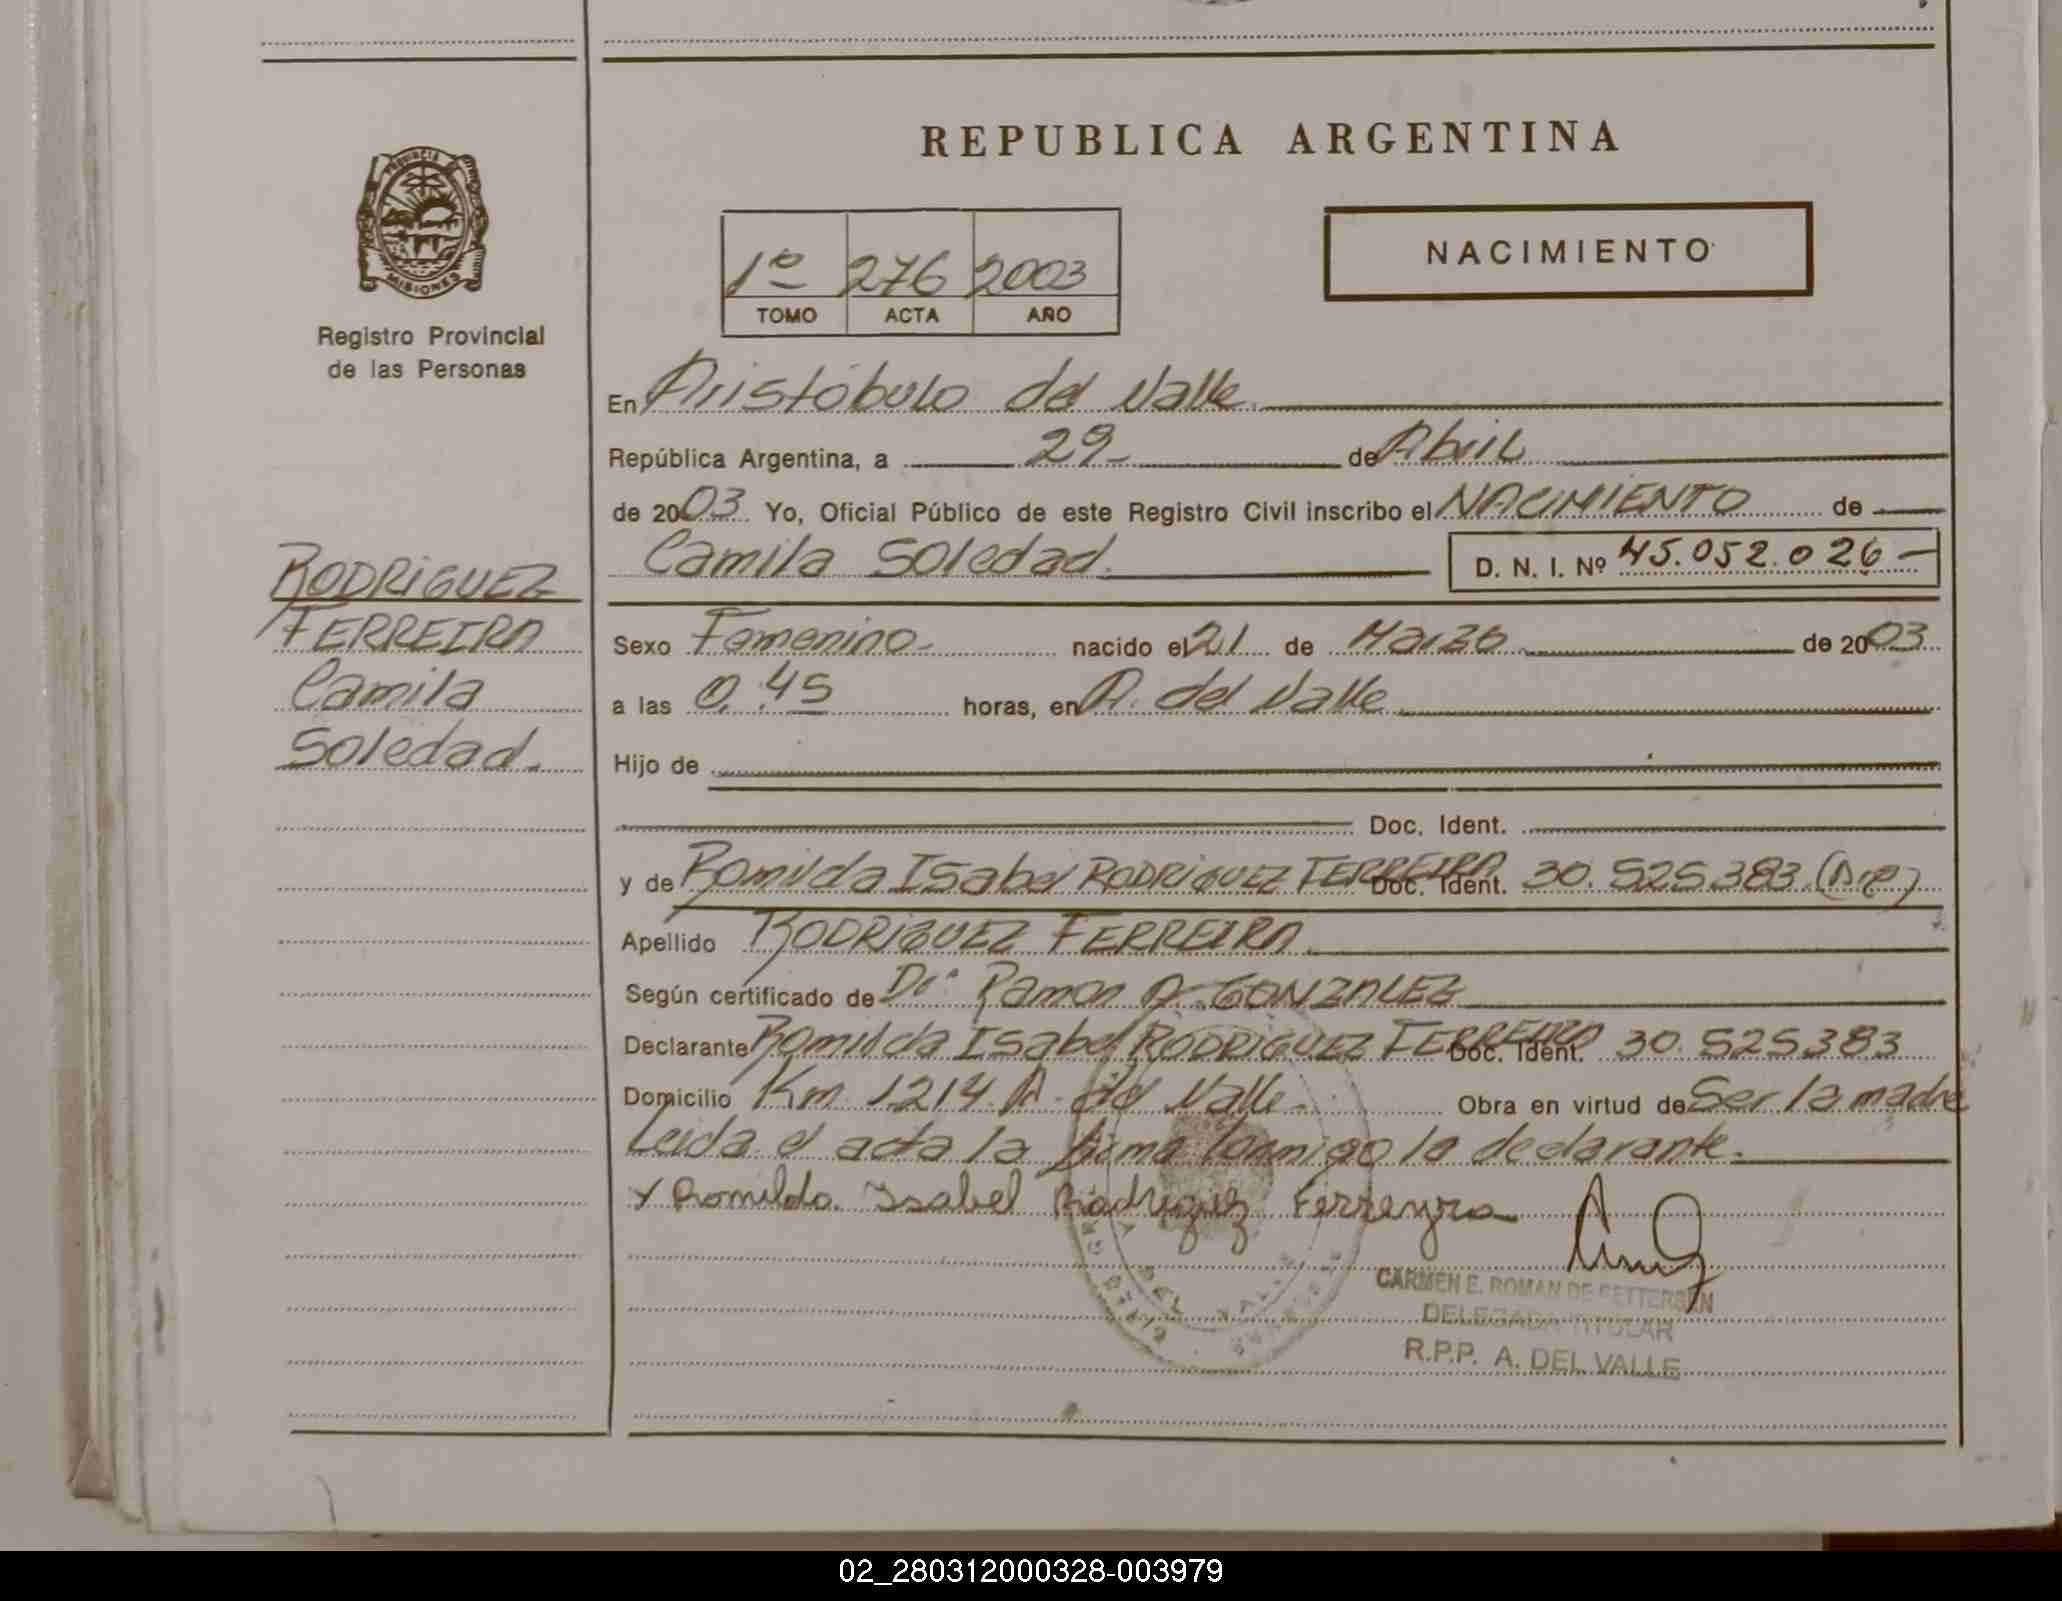 REPUBLICA ARGENTINA
PROVINCIA DE
MISIONES
Registro Provincial
de las Personas
1º 276 2003
TOMO ACTA AÑO
NACIMIENTO
RODRIGUEZ
FERREIRA
Camila
Soledad.
En Aristóbulo del Valle.
República Argentina, a 29 de Abril
de 2003 Yo, Oficial Público de este Registro Civil inscribo el NACIMIENTO de
Camila Soledad. D. N. I. Nº 45.052.026-
Sexo Femenino nacido el 21 de Marzo de 2003
a las 0.45 horas, en A. del Valle
Hijo de
Doc. Ident.
y de Romilda Isabel RODRIGUEZ FERREIRA Doc. Ident. 30.525383
Apellido RODRIGUEZ FERREIRA
Según certificado de Dr. Ramon A. GONZALEZ
Declarante Romilda Isabel RODRIGUEZ FERREIRA Doc. Ident. 30.525383
Domicilio Km. 1214. A. del Valle. Obra en virtud de Ser la madre
Leida el acta la firma conmigo la declarante.
Romilda Isabel Rodriguez Ferreyra
CARMEN E. ROMAN DE PETTERSEN
DELEGADA TITULAR
R.P.P. A. DEL VALLE
02_280312000328-003979